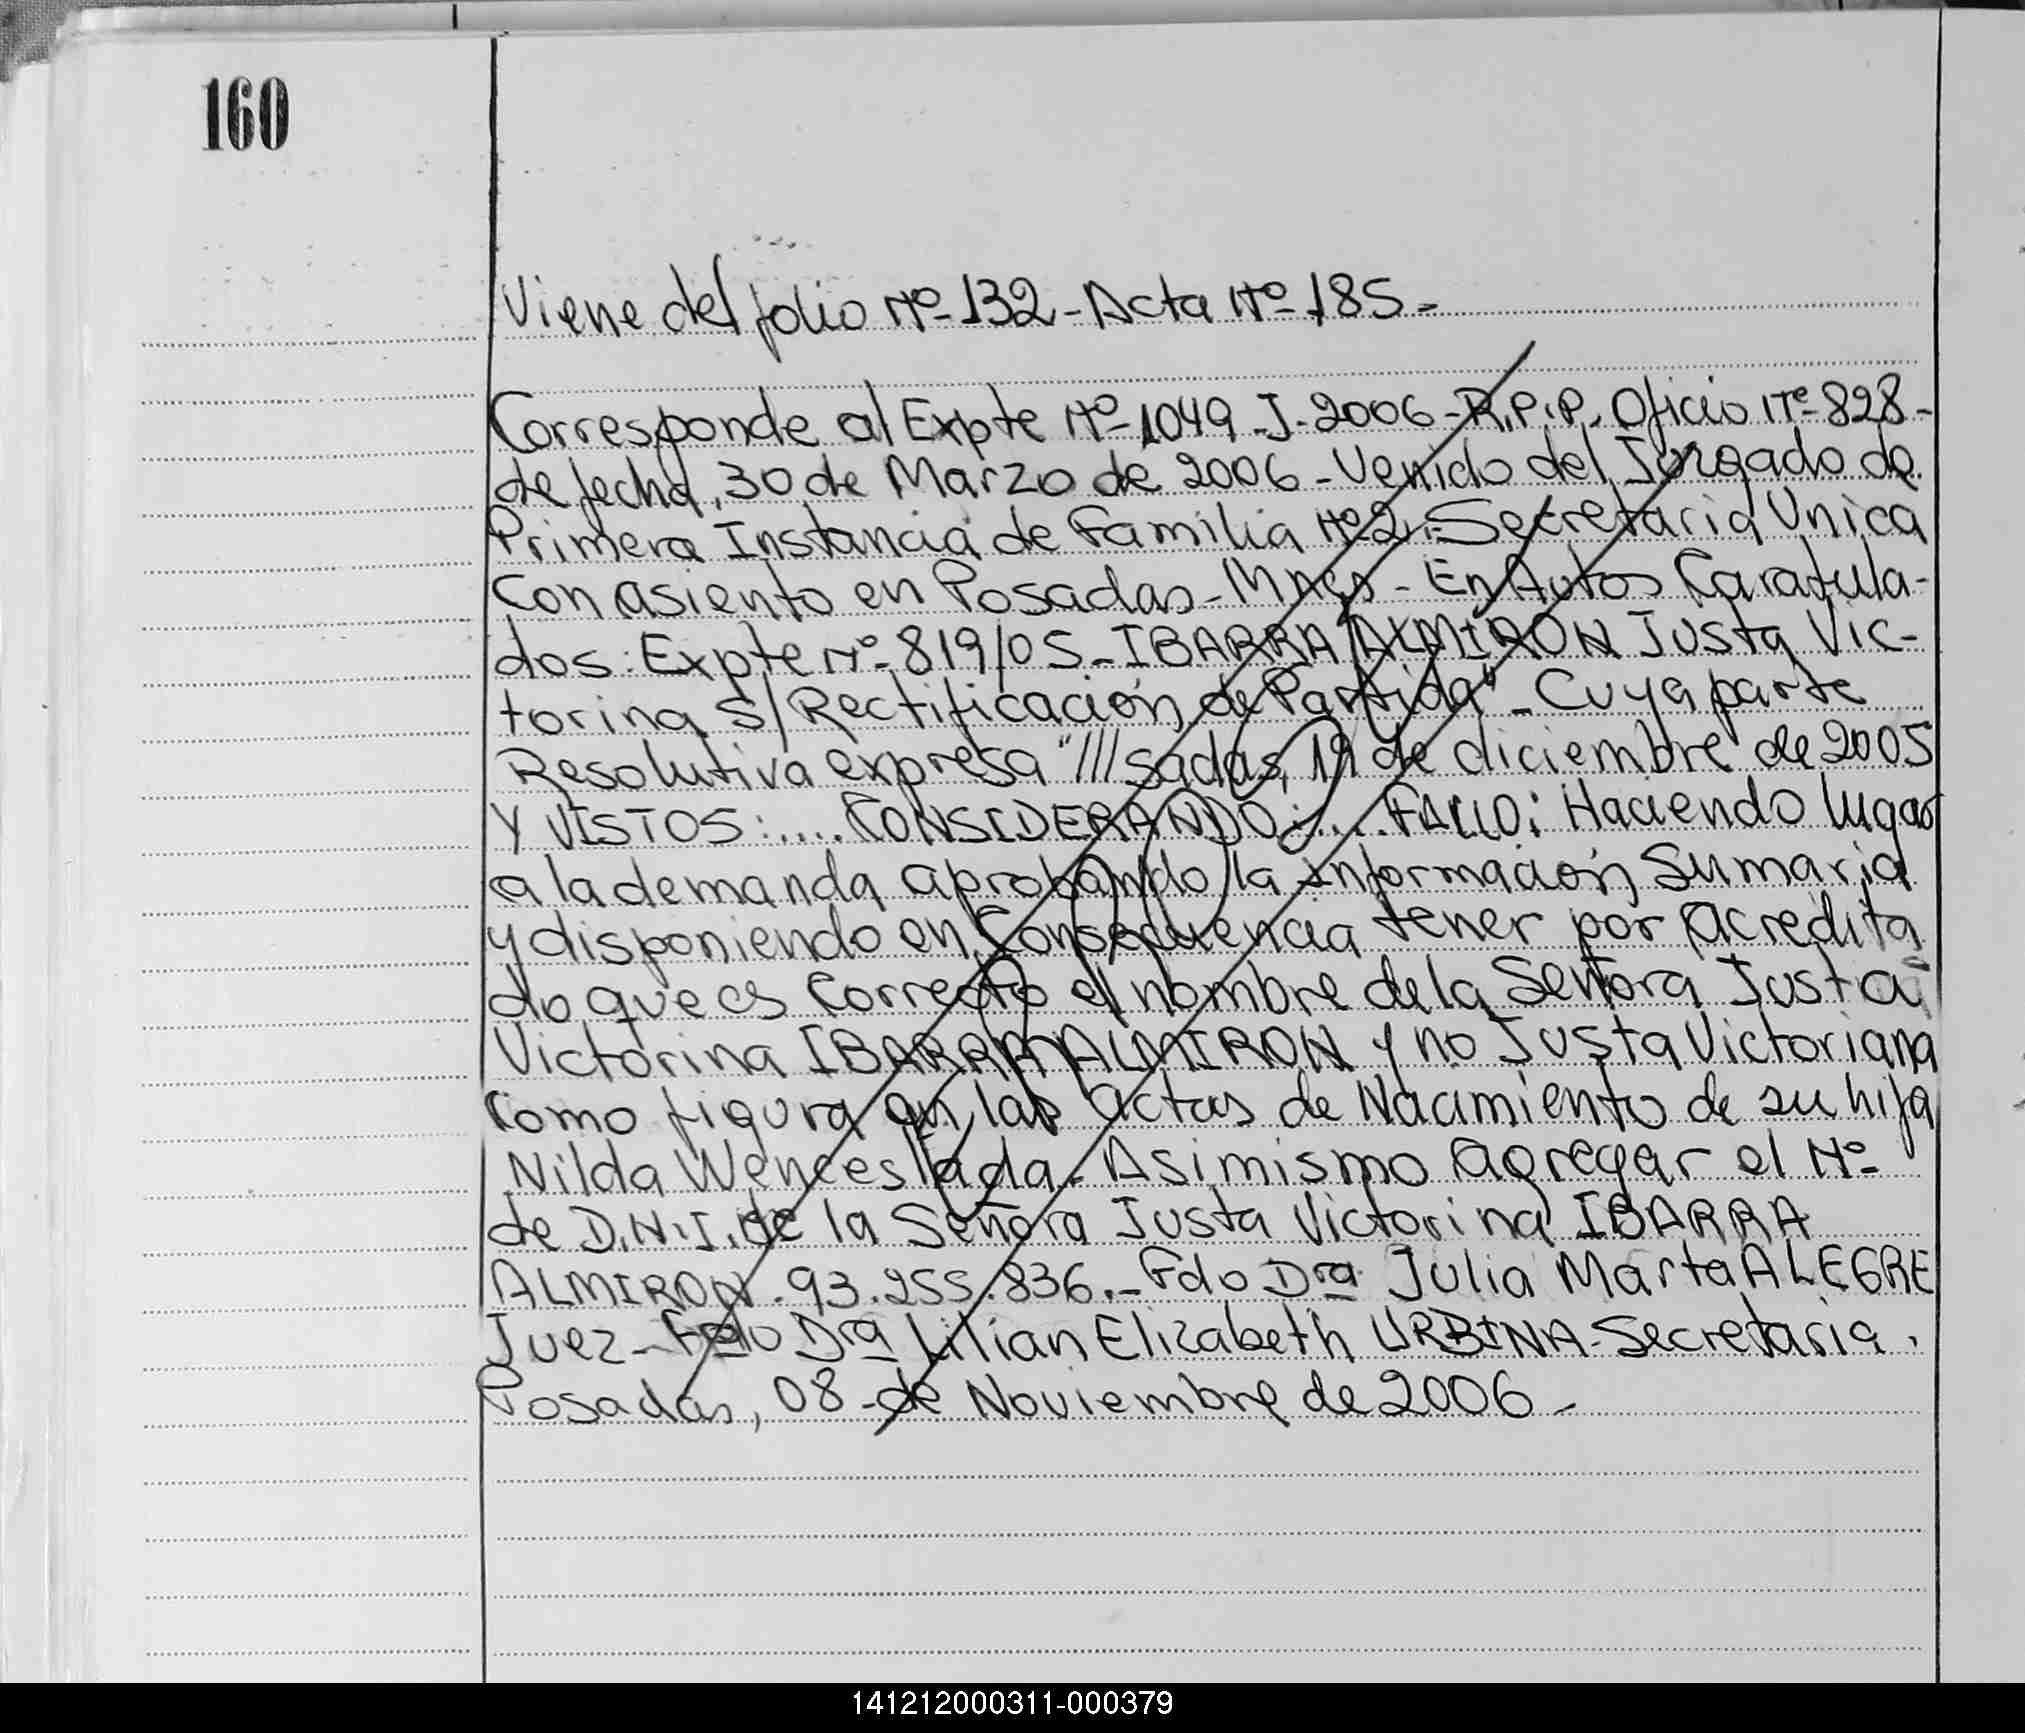 160
Viene del folio Nº 132 - Acta Nº 185 -
Corresponde al Expte Nº 1049 - J - 2006 - R.P.P. Oficio Nº 828 -
de fecha, 30 de Marzo de 2006 - Venido del Juzgado de
Primera Instancia de Familia Nº 2, - Secretaria Unica
Con asiento en Posadas - Mnes - En Autos Caratula-
dos: Expte Nº 819/05 - IBARRA ALMIRON Justa Vic-
torina S/ Rectificación de Partida" - Cuya parte
Resolutiva expresa "///sadas, 19 de diciembre de 2005
Y VISTOS:.... CONSIDERANDO:.... FALLO: Haciendo lugar
a la demanda aprobando la información Sumaria
y disponiendo en Consecuencia tener por acredita
do que es Correcto el nombre de la Señora Justa
Victorina IBARRA ALMIRON y no Justa Victoriana
Como figura en las actas de Nacimiento de su hija
Nilda Wenceslada - Asimismo agregar el Nº
de D.N.I. de la Señora Justa Victorina IBARRA
ALMIRON . 93.255.836. - Fdo Dra Julia Marta ALEGRE
Juez - Fdo Dra Lilian Elizabeth URBINA - Secretaria.
Posadas, 08 - de Noviembre de 2006 -
141212000311-000379